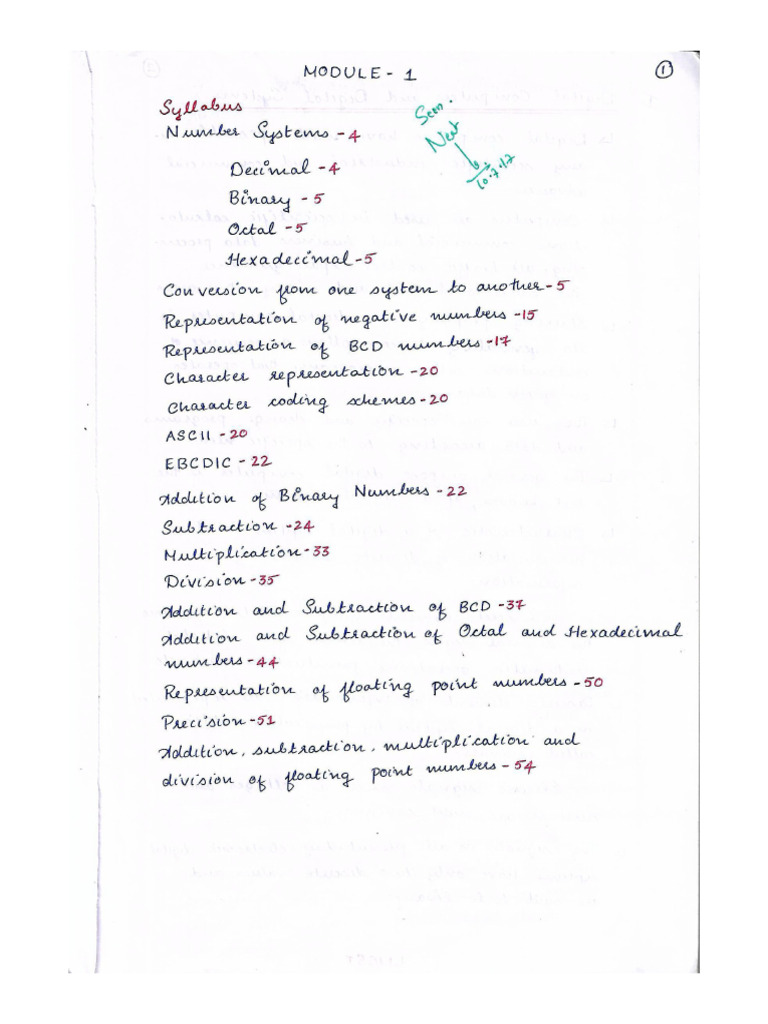 MODULE - 1
1
Syllabus
Seen.
Neat
10.7.17
Number Systems - 4
Decimal - 4
Binary - 5
Octal - 5
Hexadecimal - 5
Conversion from one system to another - 5
Representation of negative numbers - 15
Representation of BCD numbers - 17
Character representation - 20
Character coding schemes - 20
ASCII - 20
EBCDIC - 22
Addition of Binary Numbers - 22
Subtraction - 24
Multiplication - 33
Division - 35
Addition and Subtraction of BCD - 37
Addition and Subtraction of Octal and Hexadecimal
numbers - 44
Representation of floating point numbers - 50
Precision - 51
Addition, subtraction, multiplication and
division of floating point numbers - 54